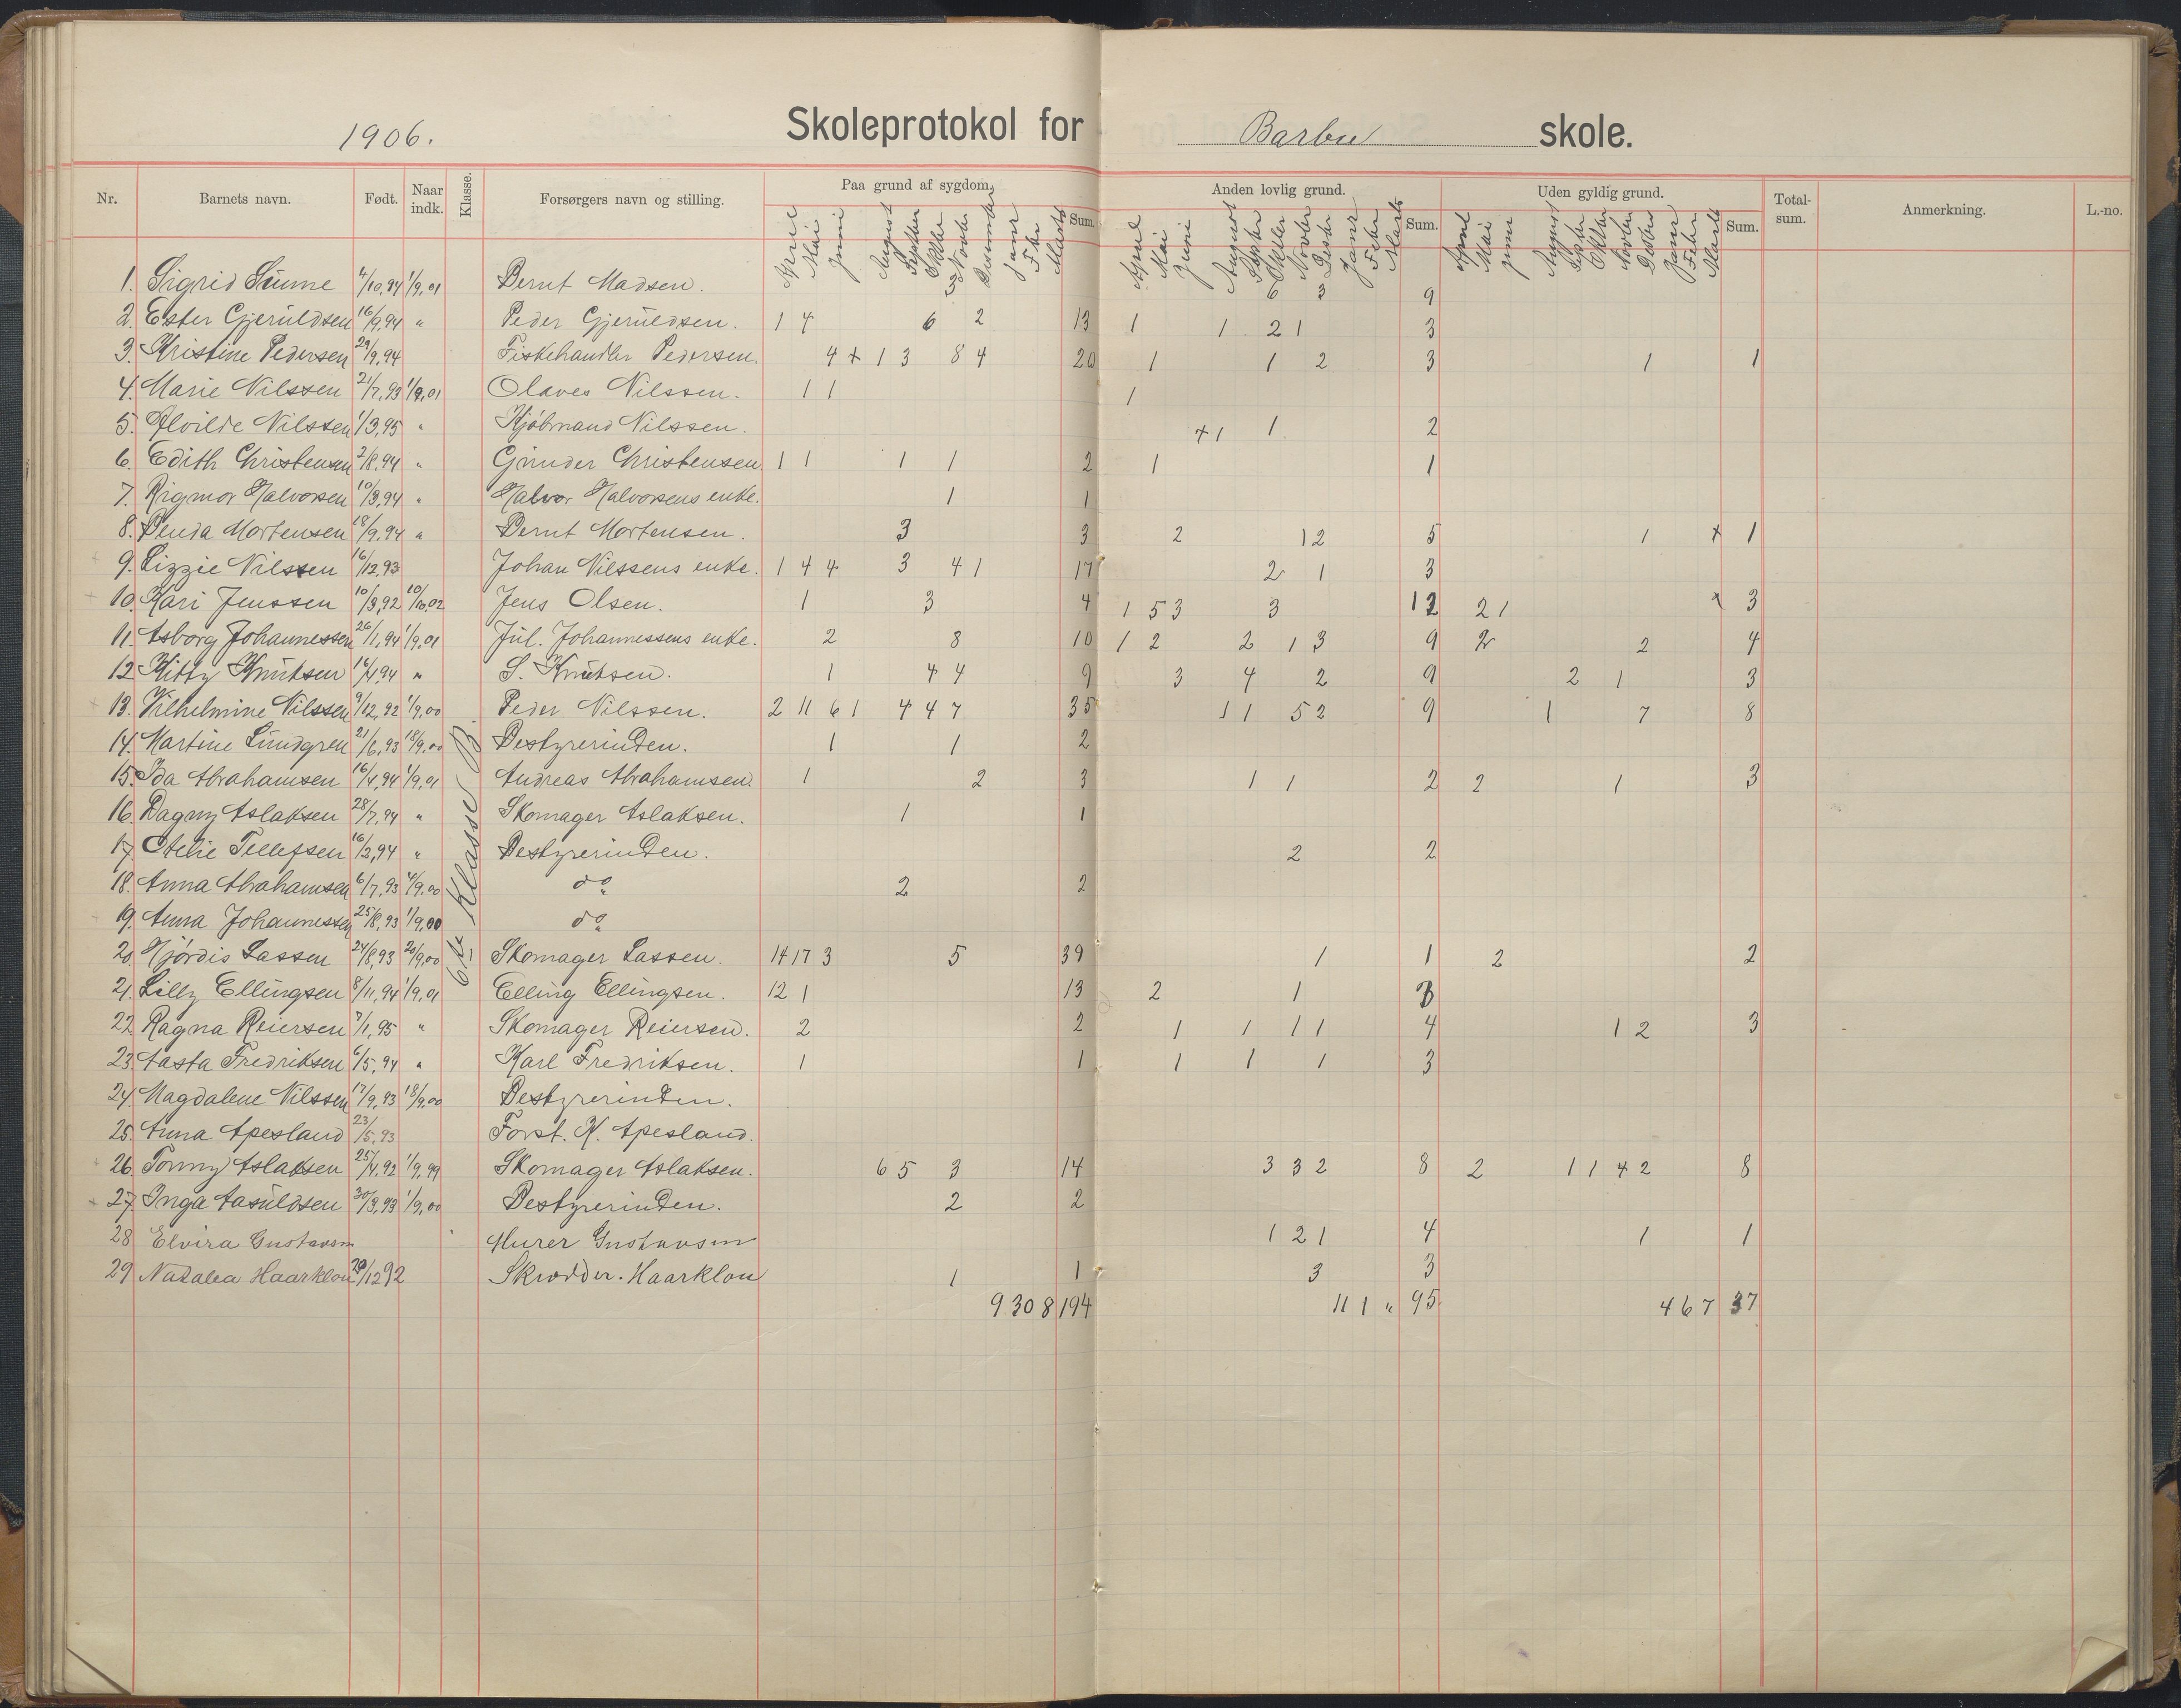 1906.
Skoleprotokol for Barbu skole.
Nr. Barnets navn. Født. Naar indk. Klasse. Forsørgers navn og stilling. Paa grund af sygdom. Sum. Anden lovlig grund. Sum. Uden gyldig grund. Sum. Total-sum. Anmerkning. L.-no.
April Mai Juni August Septbr Oktbr Novbr December Janr Febr Marts April Mai Juni August Septbr Oktbr Novbr Desbr Janr Febr Marts April Mai Juni August Septbr Oktbr Novbr Desbr Janr Febr Marts
6te Klasse B.
1. Sigrid Sunne 4/10,94 1/9,01 Bernt Madsen. 3 6 3 9
2. Ester Gjeruldsen 16/9,94 " Peder Gjeruldsen. 1 4 6 2 13 1 1 2 1 3
3. Kristine Pedersen 29/9,94 Fiskehandler Pedersen. 4 + 1 3 8 4 20 1 1 2 3 1 1
4. Marie Nilssen 21/7,93 1/9,01 Olaves Nilssen. 1 1 1
5. Alvilde Nilssen 1/3,95 " Kjøbmand Nilssen. + 1 1 2
6. Edith Christensen 2/8,94 " Gjunder Christensen. 1 1 1 1 2 1 1
7. Rigmor Halvorsen 10/3,94 " Halvor Halvorsens enke. 1 1
8. Benda Mortensen 18/9,94 " Bernt Mortensen. 3 3 2 1 2 5 1 + 1
9. Lizzie Nilssen 16/12,93 Johan Nilssens enke. 1 4 4 3 4 1 17 2 1 3
10. Kari Jenssen 10/3,92 10/10,02 Jens Olsen. 1 3 4 1 5 3 3 12 2 1 3
11. Asborg Johannessen 26/1,94 1/9,01 Jul. Johannessens enke. 2 8 10 1 2 2 1 3 9 2 2 4
12. Kitty Knutsen 16/4,94 " S. Knutsen. 1 4 4 9 3 4 2 9 2 1 3
13. Vilhelmine Nilssen 9/12,92 1/9,00 Peder Nilssen. 2 11 6 1 4 4 7 35 1 1 5 2 9 1 7 8
14. Martine Lundgren 21/6,93 18/9,00 Bestyrerinden. 1 1 2
15. Ida Abrahamsen 16/4,94 1/9,01 Andreas Abrahamsen. 1 2 3 1 1 2 2 1 3
16. Dagny Aslaksen 28/7,94 " Skomager Aslaksen. 1 1
17. Otelie Tellefsen 16/2,94 " Bestyrerinden. 2 2
18. Anna Abrahamsen 6/7,93 4/9,00 do 2 2
19. Anna Johannessen 25/8,93 1/9,00 do
20. Hjördis Lassen 24/8,93 20/9,00 Skomager Lassen. 14 17 3 5 39 1 1 2 2
21. Lilly Ellingsen 8/11,94 1/9,01 Elling Ellingsen. 12 1 13 2 1 3
22. Ragna Reiersen 7/1,95 " Skomager Reiersen. 2 2 1 1 1 1 4 1 2 3
23. Aasta Fredriksen 6/5,94 " Karl Fredriksen. 1 1 1 1 1 3
24. Magdalene Nilssen 17/9,93 18/9,00 Bestyrerinden.
25. Anna Apesland 23/5,93 Forst. K. Apesland.
26. Tonny Aslaksen 25/4,92 1/9,99 Skomager Aslaksen. 6 5 3 14 3 3 2 8 2 1 1 4 2 8
27. Inga Aasuldsen 30/3,93 1/9,00 Bestyrerinden. 2 2
28 Elvira Gustavsen Murer Gustavsen 1 2 1 4 1 1
29 Natalea Haarklou 29/12 92 Skrædder. Haarklou 1 1 3 3
9 30 8 194 11 1 " 95 4 6 7 37